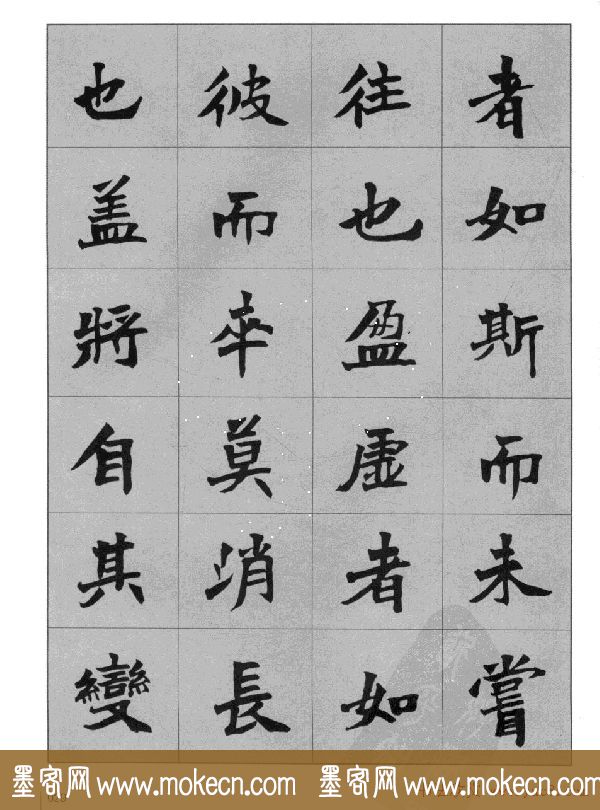 者如斯而未嘗
往也盈虛者如
彼而卒莫消長
也盖將自其變
墨客网 www.mokecn.com 墨客网 www.mokecn.com